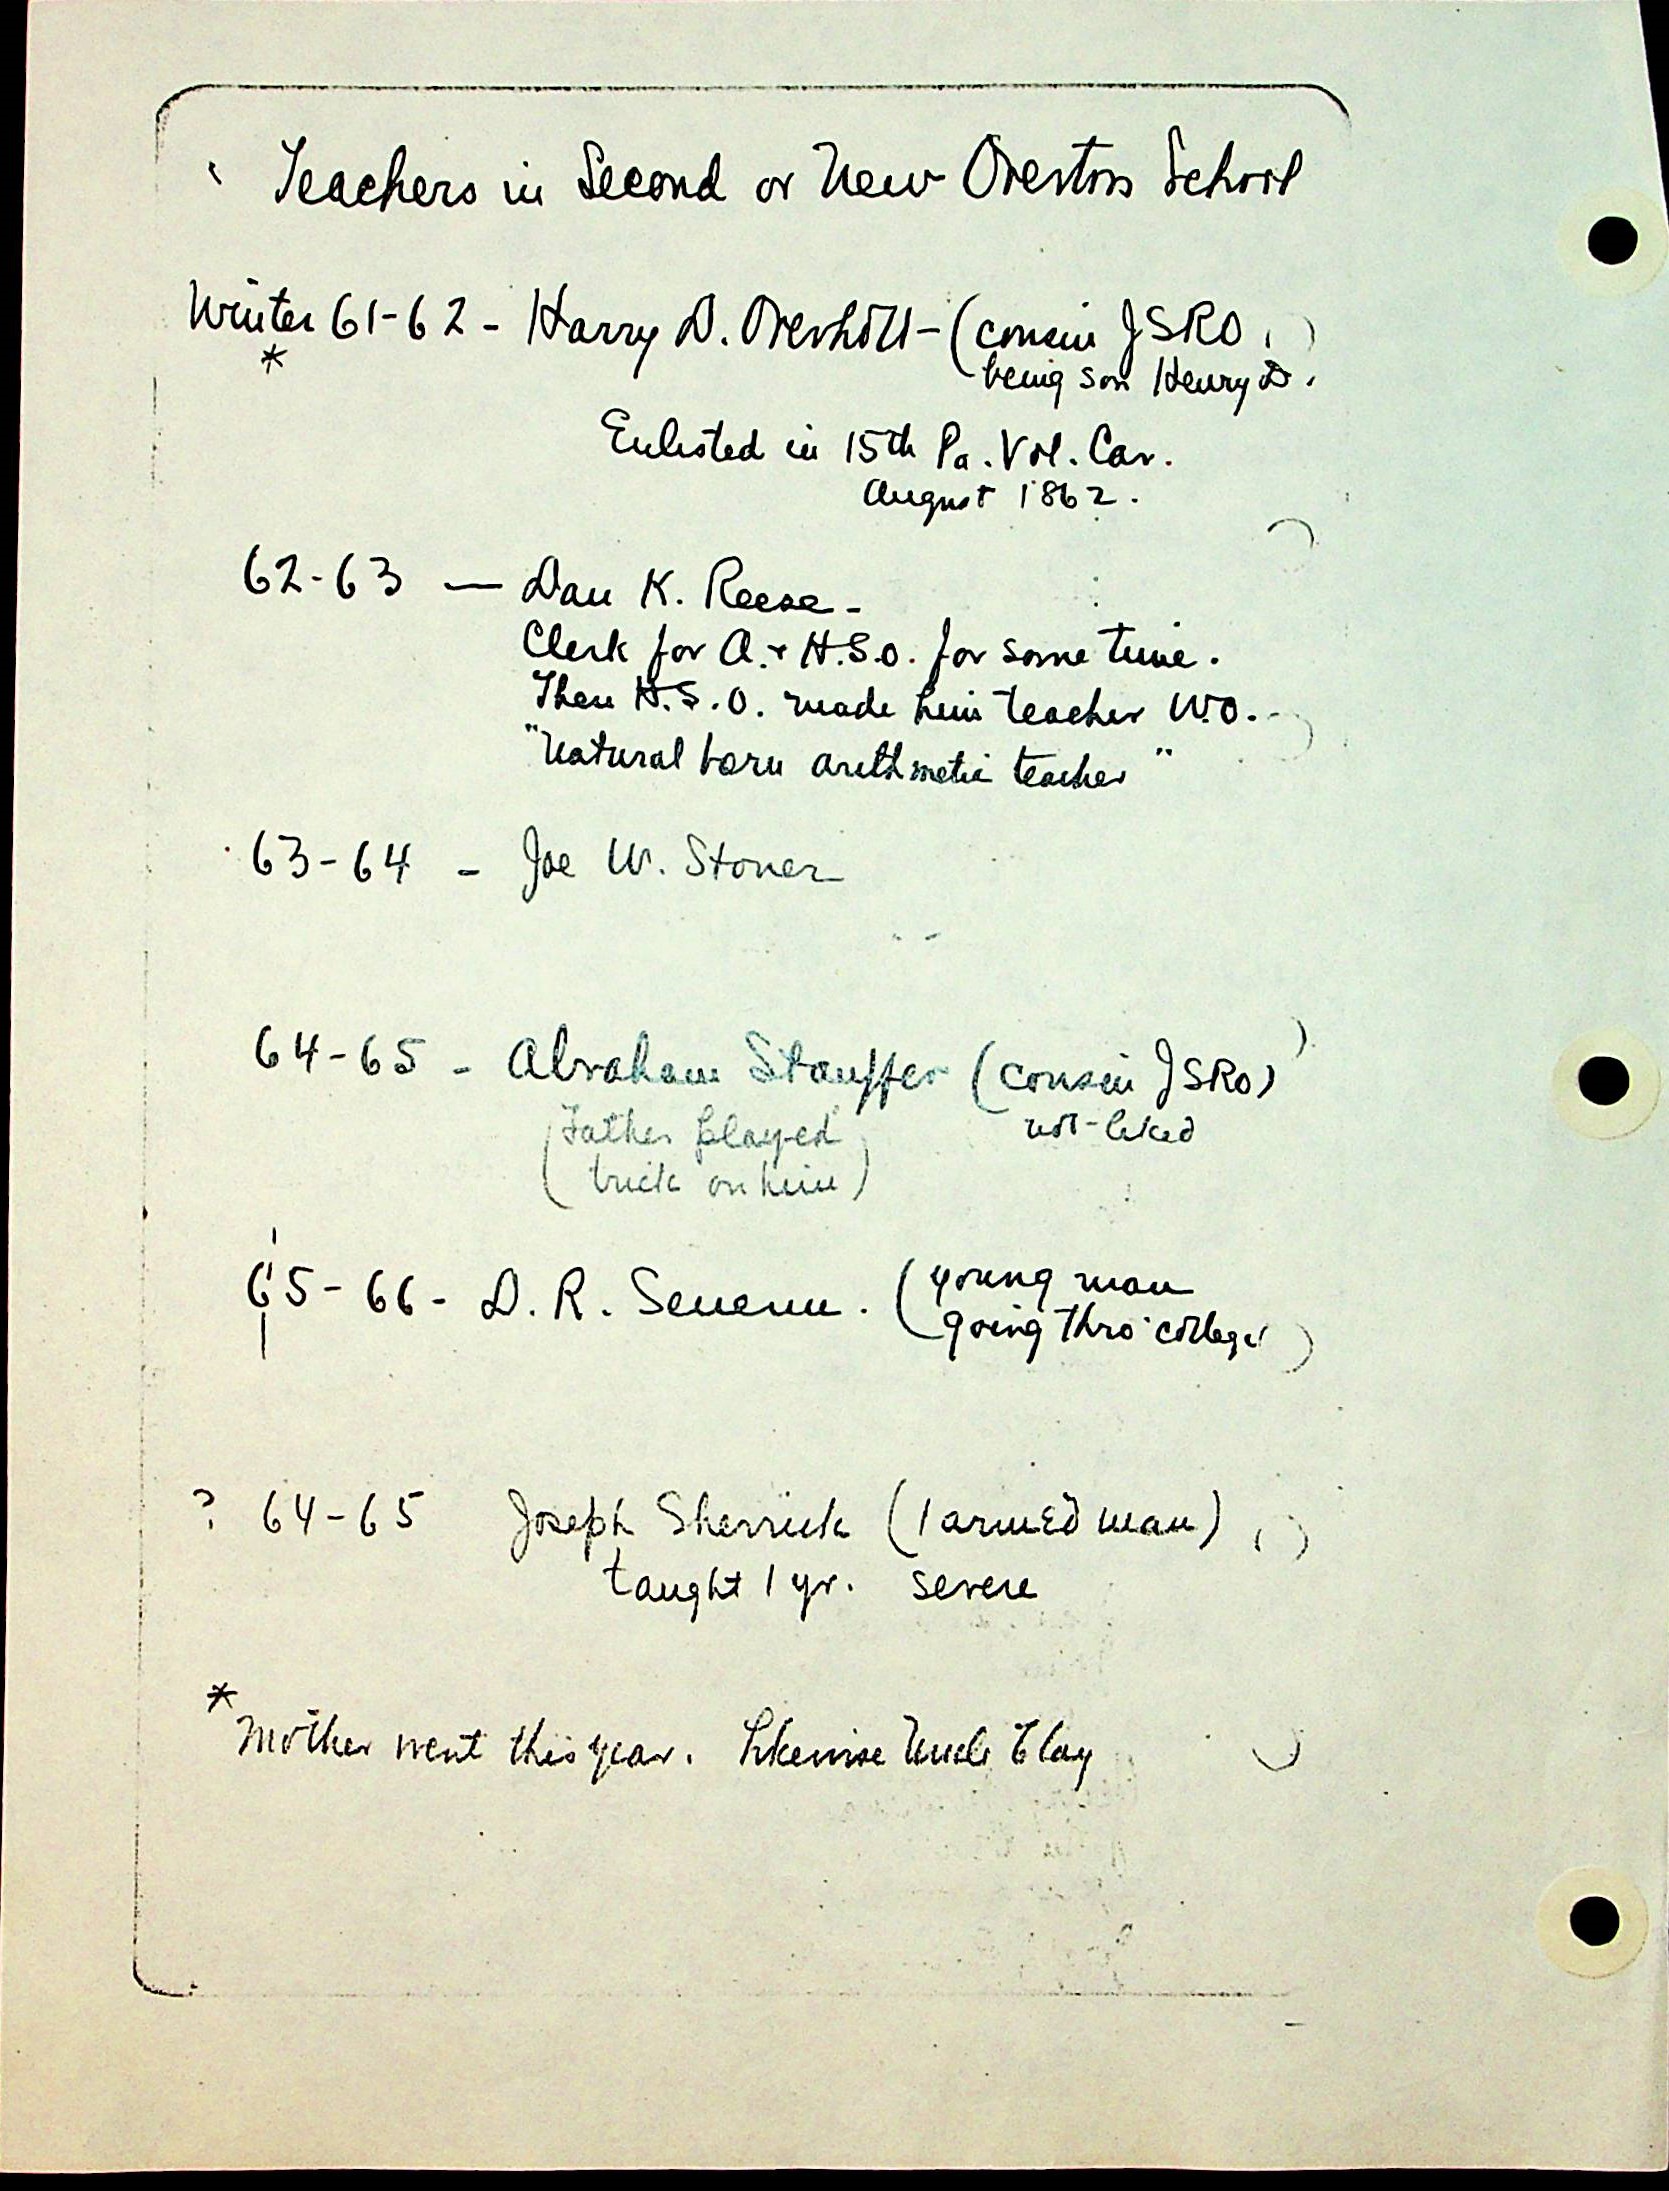 Teachers in Second or New Overton School
Winter 61-62 - Harry D. Overholt - (cousin JSRO,)
* being son Henry D.
Enlisted in 15th Pa. Vol. Cav.
August 1862.
62-63 — Dan K. Reese -
Clerk for A. + H.S.O. for some time.
Then H.S.O. made him teacher W.O. -
"Natural born arithmetic teacher"
63-64 - Joe W. Stoner
64-65 - Abraham Stauffer (cousin JSRO)
(Father played not-liked
trick on him)
65-66 - D. R. . (young man
going thro' college)
? 64-65 Joseph Sherrick (1 armed man)
taught 1 yr. severe
*
Mother went this year. Likewise Uncle Clay